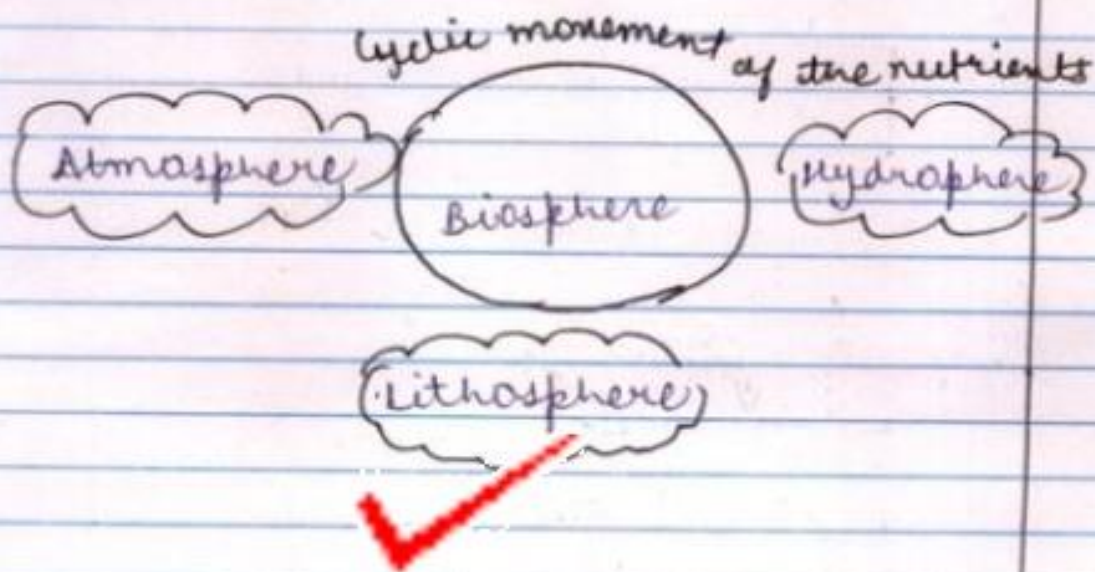 Cyclic movement of the nutrients
Atmosphere
Biosphere
Hydrophere
Lithosphere